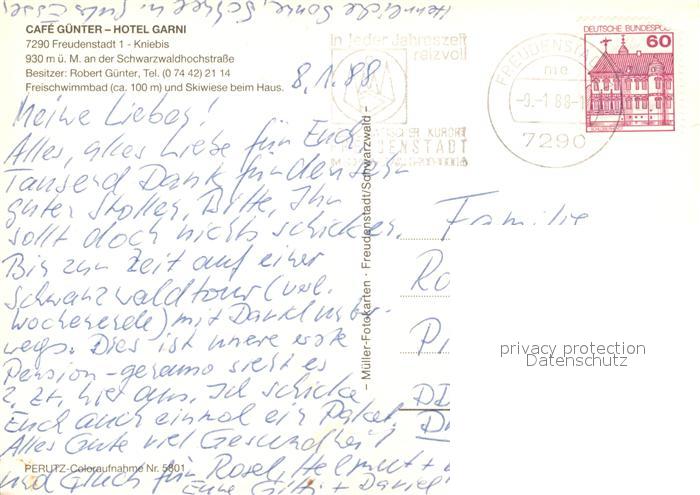 Herrliche Sonne, Schnee u. gutes Essen
CAFÉ GÜNTER – HOTEL GARNI
7290 Freudenstadt 1 - Kniebis
930 m ü. M. an der Schwarzwaldhochstraße
Besitzer: Robert Günter, Tel. (0 74 42) 21 14
Freischwimmbad (ca. 100 m) und Skiwiese beim Haus.
8.1.88
Meine Lieben!
Alles, alles Liebe für Euch,
Tausend Dank für den sehr
guten Stollen. Bitte, Ihr
sollt doch nichts schicken.
Bin zur Zeit auf einer
Schwarzwaldtour (verl.
Wochenende) mit Daniel unter-
wegs. Dies ist unsere erste
Pension - genauso sieht es
z. Zt. hier aus. Ich schicke
Euch auch einmal ein Paket.
Alles Gute viel Gesundheit
und Glück für Rosel, Helmut +
Eure Gitti + Daniel
PERUTZ-Coloraufnahme Nr. 5801
– Müller-Fotokarten · Freudenstadt/Schwarzwald –
In jeder Jahreszeit
reizvoll
KURORT
FREUDENSTADT
-9.-1 88-1
7290
DEUTSCHE BUNDESPOST
60
Familie
Ro
P
DD
privacy protection
Datenschutz